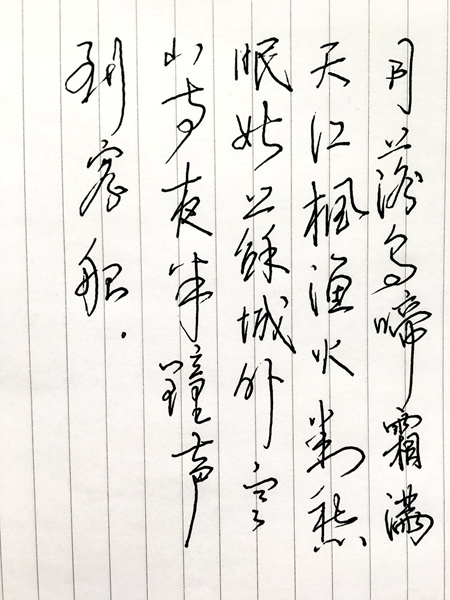 月落乌啼霜满
天江枫渔火對愁
眠姑蘇城外寒
山寺夜半鐘声
到客船.